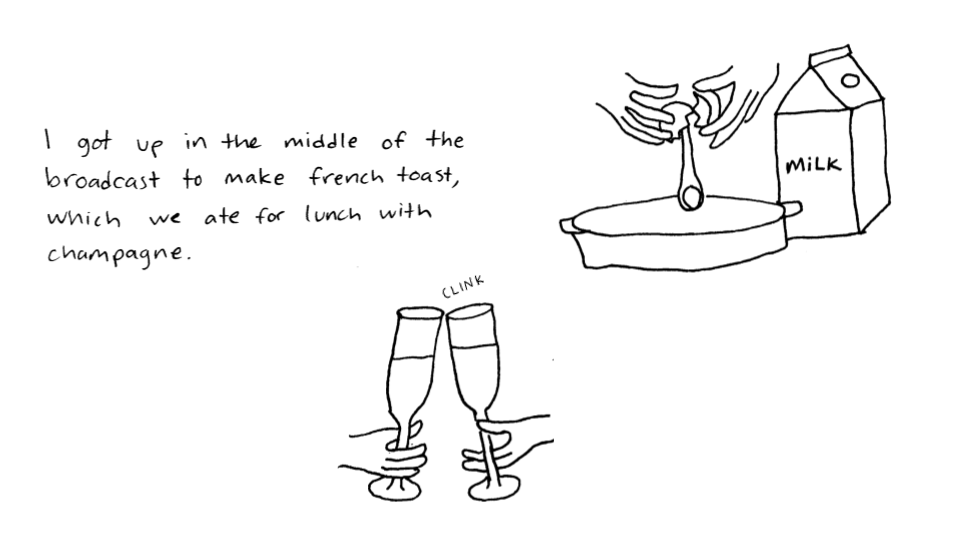 I got up in the middle of the
broadcast to make french toast,
which we ate for lunch with
champagne.
MiLK
CLINK